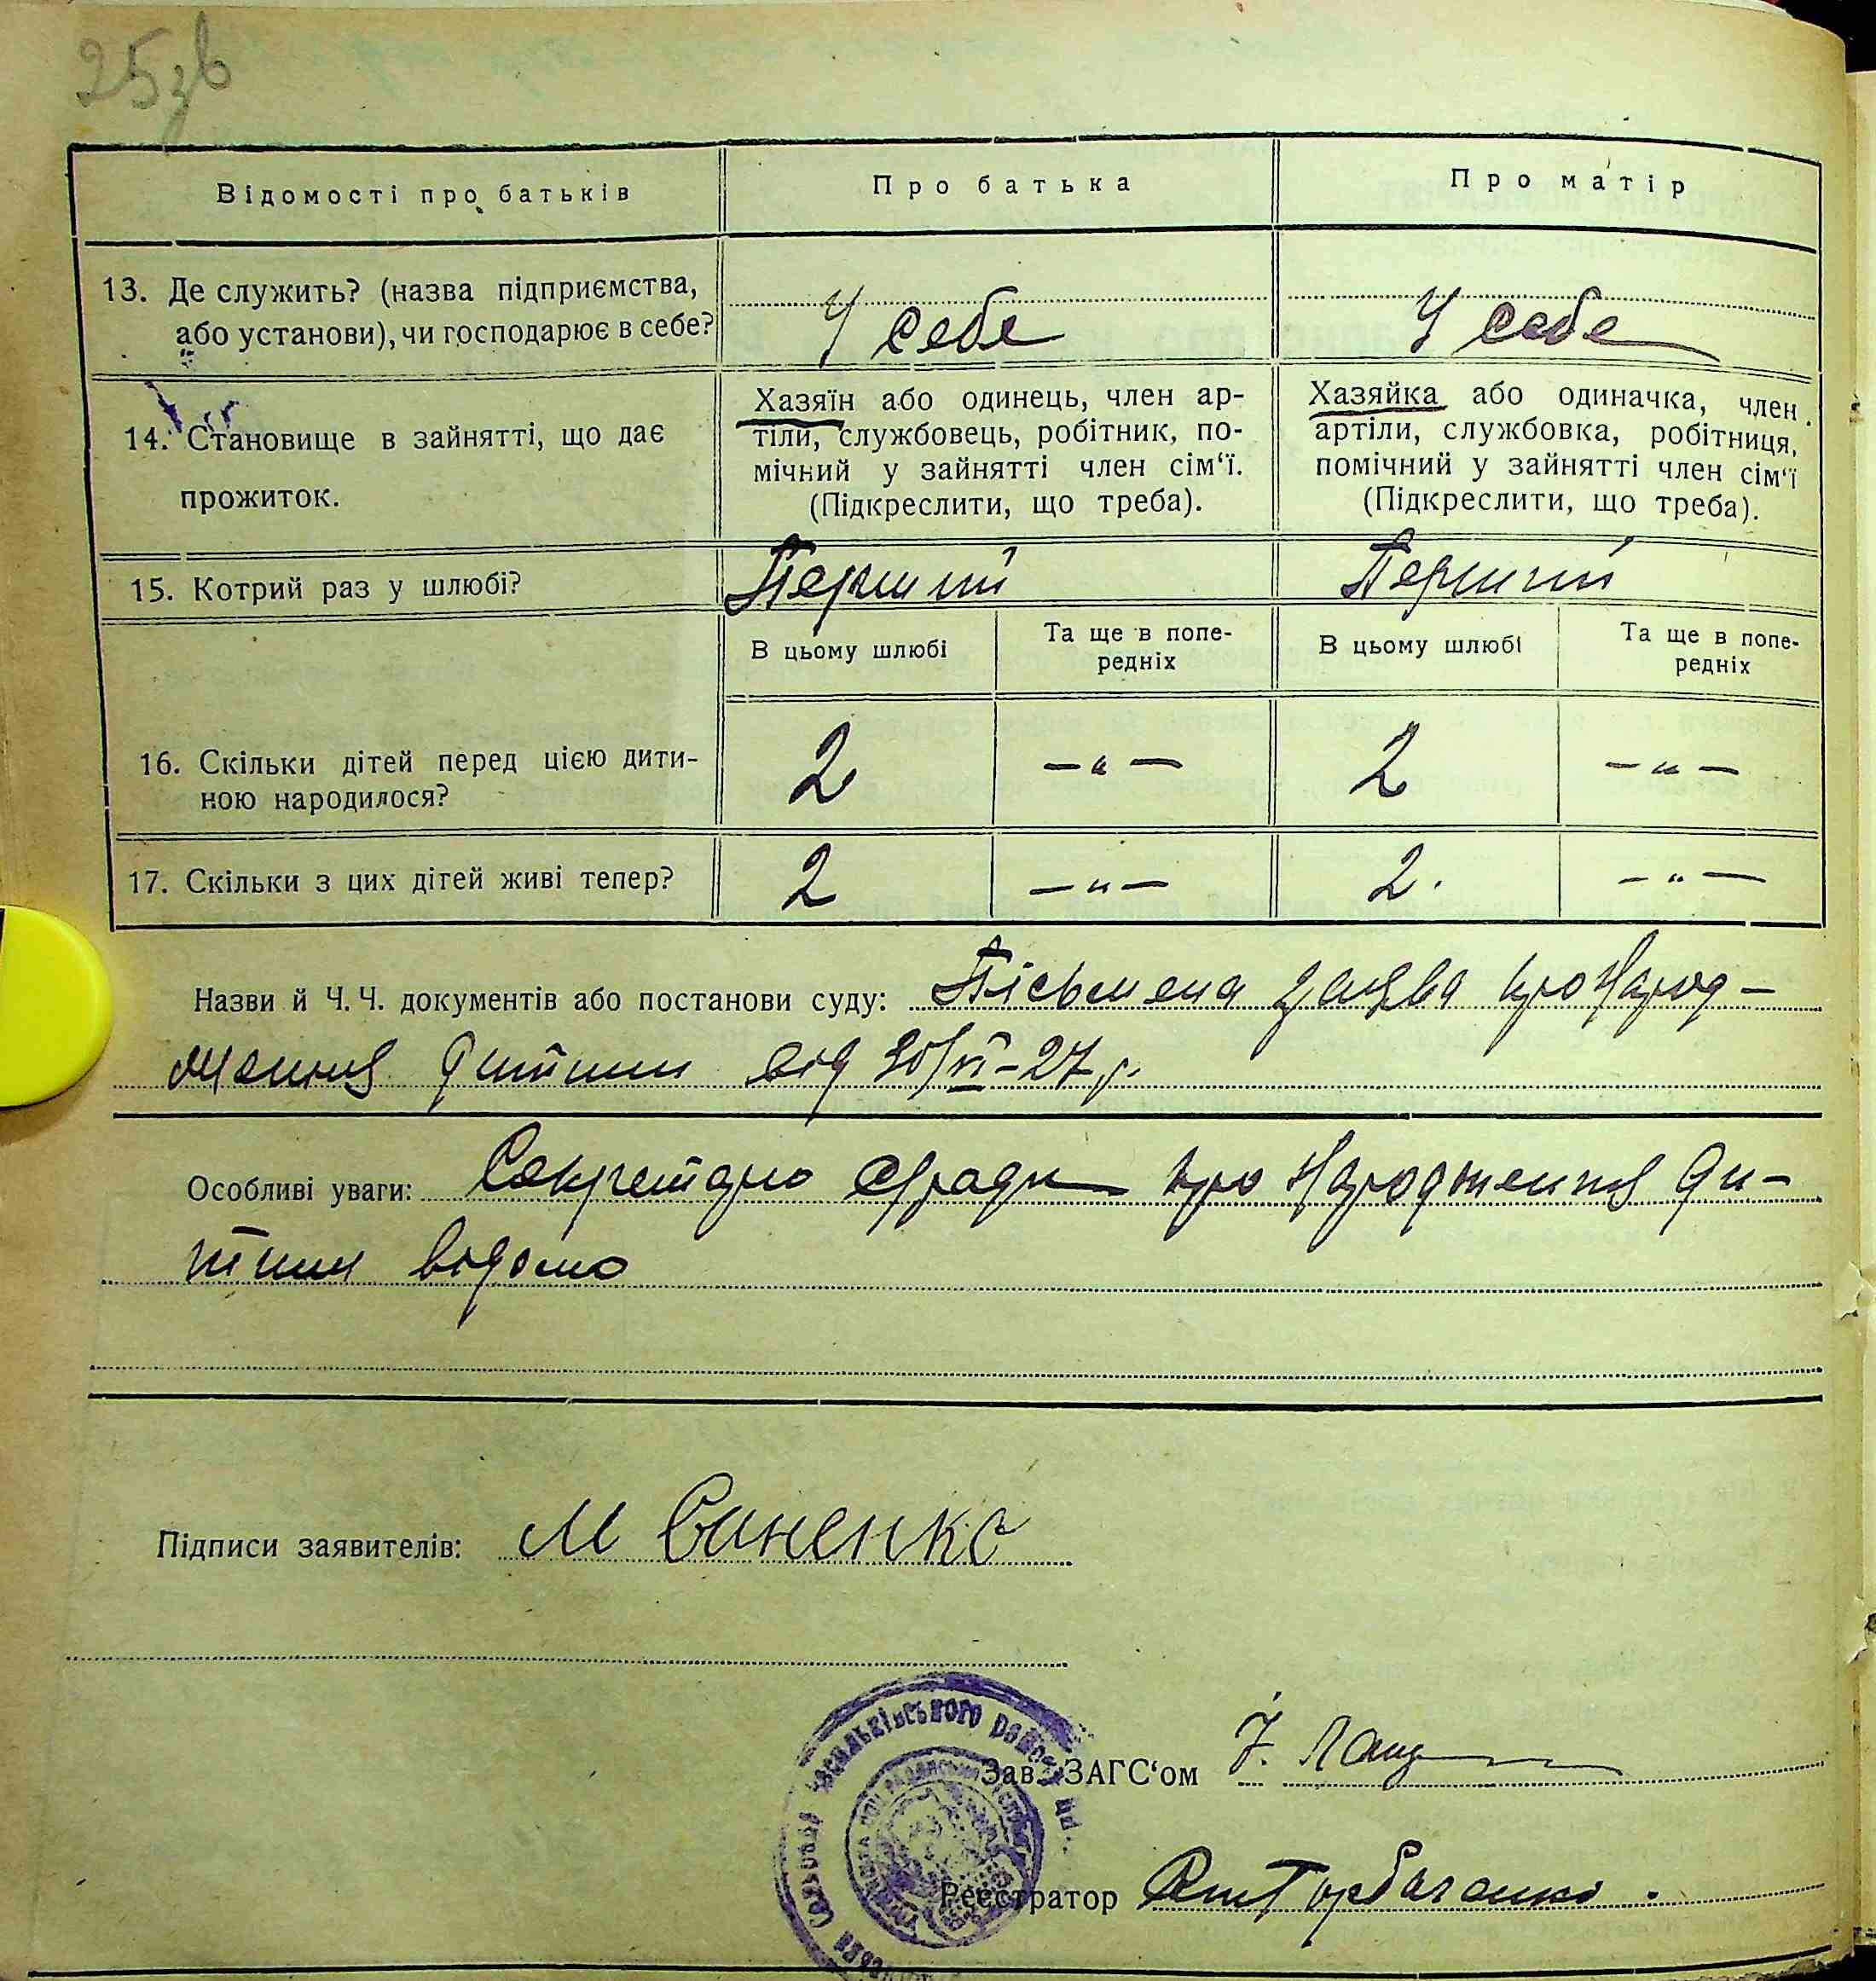 25зв
Відомості про батьків
Про батька
Про матір
13. Де служить? (назва підприємства,
або установи), чи господарює в себе?
У себе
У себе
14. Становище в зайнятті, що дає
прожиток.
Хазяїн або одинець, член ар-
тіли, службовець, робітник, по-
мічний у зайнятті член сім‘ї.
(Підкреслити, що треба).
Хазяйка або одиначка, член
артіли, службовка, робітниця,
помічний у зайнятті член сім‘ї
(Підкреслити, що треба).
15. Котрий раз у шлюбі?
Перший
Перший
В цьому шлюбі
Та ще в попе-
редніх
В цьому шлюбі
Та ще в попе-
редніх
16. Скільки дітей перед цією дити-
ною народилося?
2
—"—
2
—"—
17. Скільки з цих дітей живі тепер?
2
—"—
2.
—"—
Назви й Ч. Ч. документів або постанови суду: Пісьмена заява про народ-
ження дитини від 30/VI-27 р.
Особливі уваги: Секретарю с/ради про народження ди-
тини відомо
Підписи заявителів: М Саненко
Васильківського району
Зав. ЗАГС‘ом
Реєстратор Горбаченко.